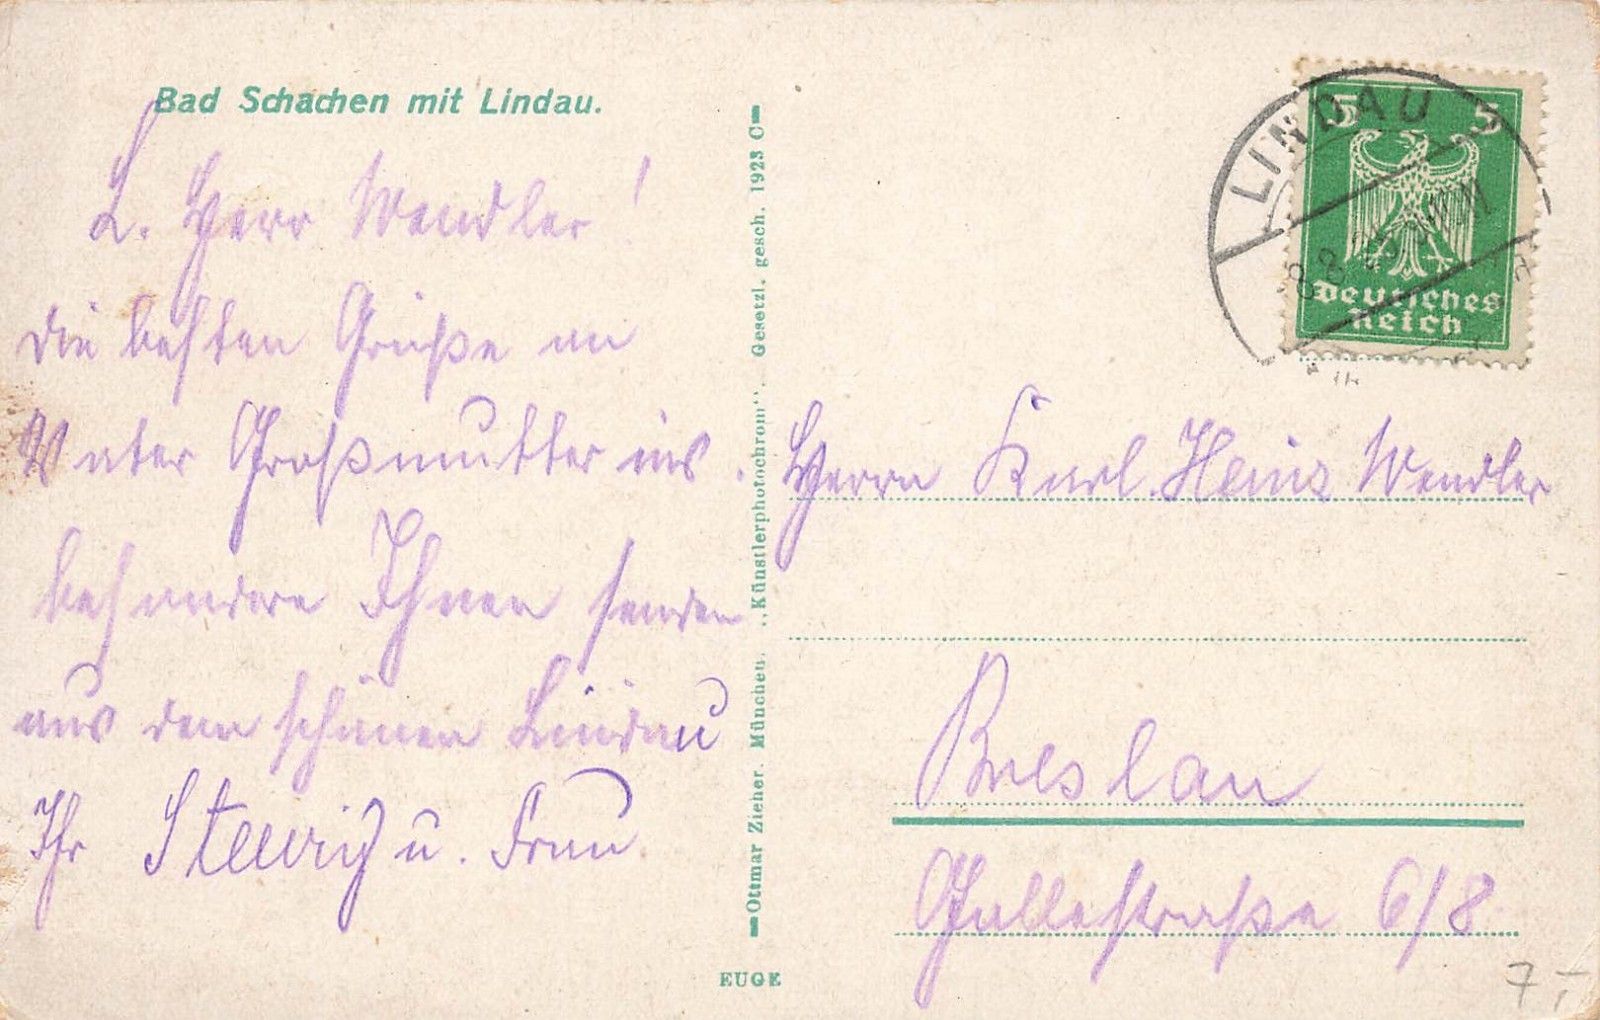 Bad Schachen mit Lindau.
L. Herr Wendler!
die besten Grüße an
Vater Großmutter ins.
besondere Ihnen senden
aus dem schönen Lindau
Ihr u. Frau
Ottmar Zieher. München. „Künstlerphotochrom". Gesetzl. gesch. 1923 C
EUGE
LINDAU
8.8.
5 5
Deutsches
Reich
Herrn Karl. Heinz Wendler
Breslau
straße 6/8
7,-